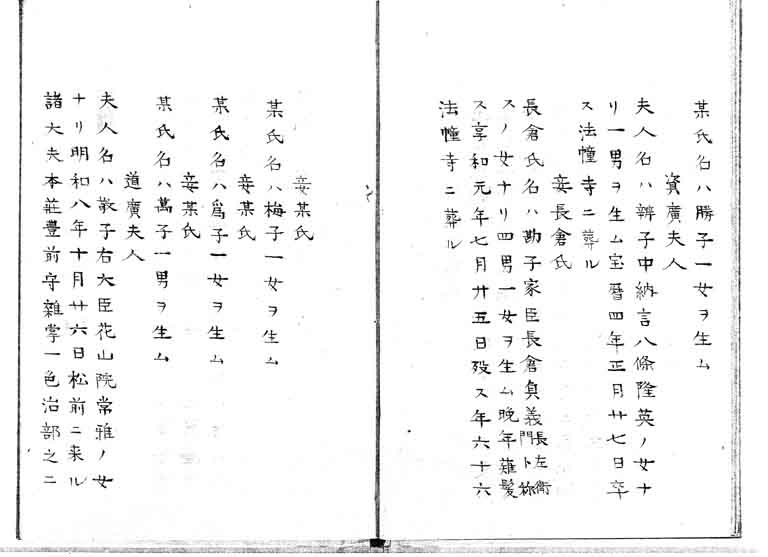 某氏名ハ勝子一女ヲ生ム
資廣夫人
夫人名ハ辨子中納言八條隆英ノ女ナ
リ一男ヲ生ム宝暦四年正月廿七日卒
ス法幢寺ニ葬ル
妾長倉氏
長倉氏名ハ勘子家臣長倉眞義長左衛門ト称
スノ女ナリ四男一女ヲ生ム晩年薙髪
ス享和元年七月廿五日歿ス年六十六
法幢寺ニ葬ル
妾某氏
某氏名ハ梅子一女ヲ生ム
妾某氏
某氏名ハ爲子一女ヲ生ム
妾某氏
某氏名ハ萬子一男ヲ生ム
道廣夫人
夫人名ハ敬子右大臣花山院常雅ノ女
ナリ明和八年十月廿六日松前ニ来ル
諸大夫本莊豊前守雜掌一色治部之ニ